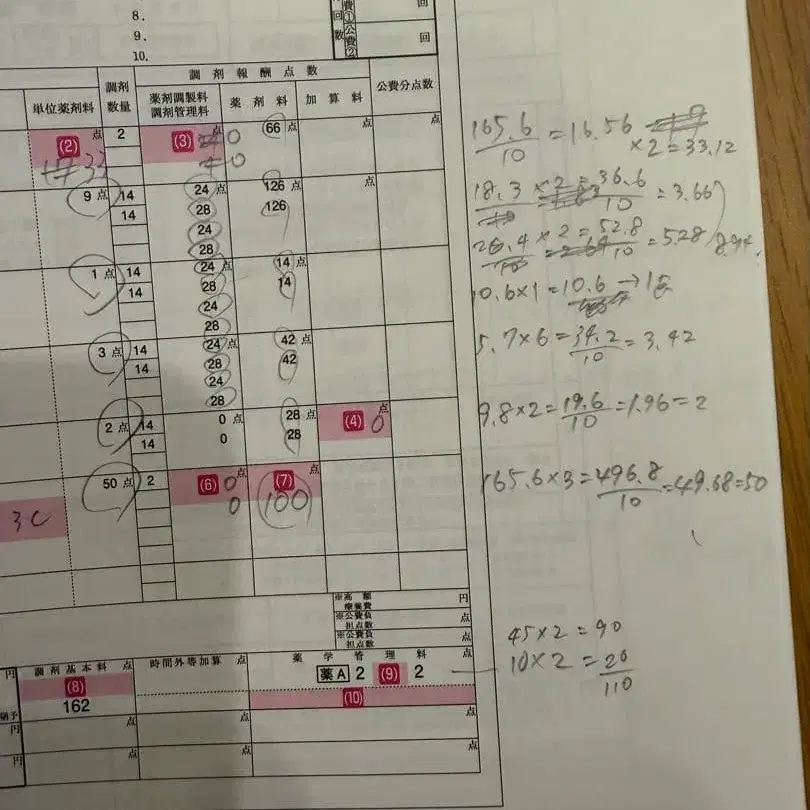 8.
9.
10.
回
数
費
①
公
費
②
回
回
調剤報酬点数
単位薬剤料
調剤
数量
薬剤調製料
調剤管理料
薬剤料
加算料
公費分点数
(2) 点 2 (3) 0 66点 点 点
33 0
9点 14 24 126点 点
14 28 126
24
28
1点 14 24点 14点
14 28 14
24
28
3点 14 24点 42点
14 28 42
24
28
2点 14 0点 28点 (4) 0 点
14 0 28
50点 2 (6) 0 点 (7) 点
30 0 100
※高額療養費 円
※公費負担点数 点
※公費負担点数 点
円 調剤基本料 点 時間外等加算 点 薬学管理料 点
(8) 薬A 2 (9) 2
162 (10)
円 点 点 点
円 点 点 点
165.6/10 = 16.56
×2 = 33.12
18.3 ×2 = 36.6/10 = 3.66
26.4 ×2 = 52.8/10 = 5.28 8.94.
10.6×1 = 10.6 → 1点
5.7×6 = 34.2/10 = 3.42
9.8×2 = 19.6/10 = 1.96 = 2
165.6×3 = 496.8/10 = 49.68 = 50
45×2 = 90
10×2 = 20
110